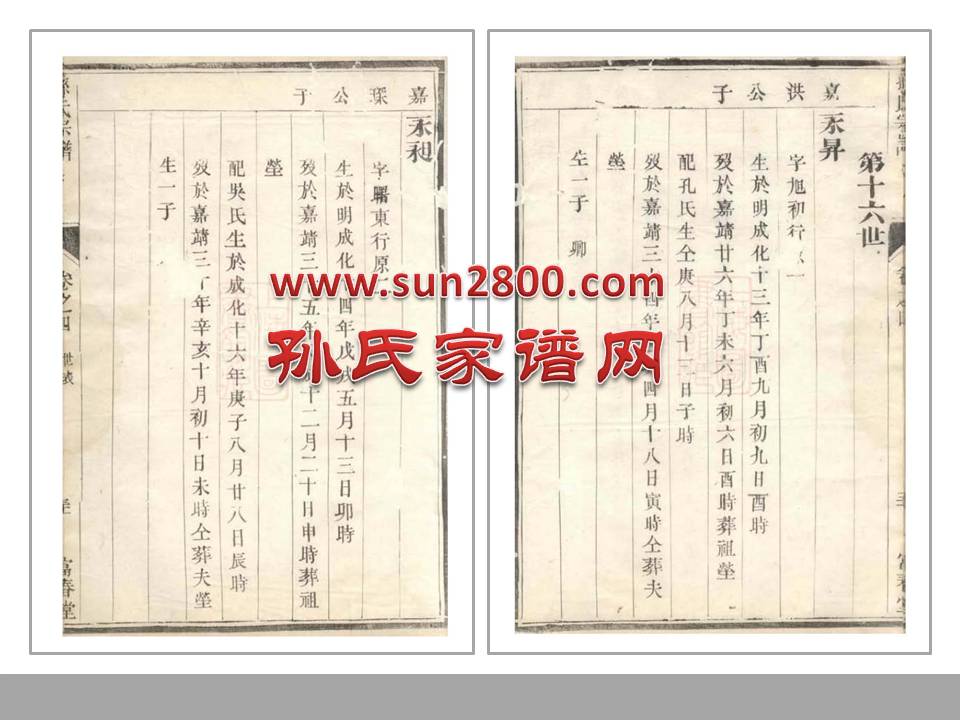 孫氏宗譜
第十六世
嘉洪公子
永昇
字旭初行
生於明成化十三年丁酉九月初九日酉時
歿於嘉靖廿六年丁未六月初六日酉時葬祖塋
配孔氏生仝庚八月十三日子時
歿於嘉靖三 酉年 四月十八日寅時仝葬夫
塋
生一子 卿
富春堂
嘉琛公子
永昶
字曙東行原
生於明成化 四年戊戌五月十三日卯時
歿於嘉靖三 五年 十二月二十日申時葬祖
塋
配吳氏生於成化十六年庚子八月廿八日辰時
歿於嘉靖三十年辛亥十月初十日未時仝葬夫塋
生一子
孫氏宗譜
卷之四
世表
富春堂
www.sun2800.com
孙氏家谱网